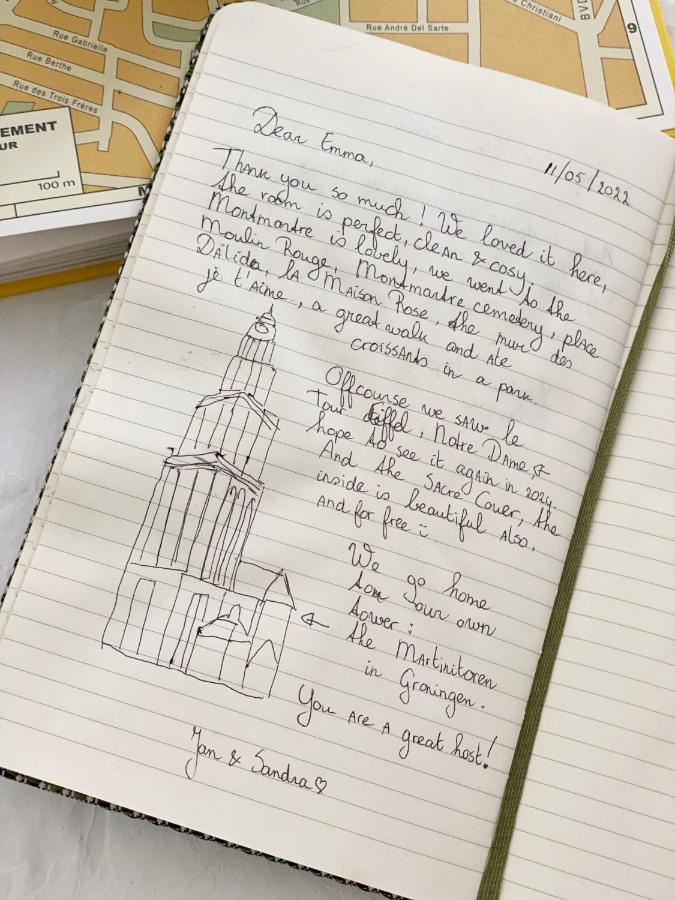 Rue Gabrielle
Rue Berthe
Rue des Trois Frères
EMENT
UR
100 m
M
Rue
Rue André Del Sarte
Christiani
BVD
9
Dear Emma,
11/05/2022
Thank you so much! We loved it here,
the room is perfect, clean & cosy.
Montmartre is lovely, we went to the
Moulin Rouge, Montmartre cemetery, place
Dalida, la Maison Rose, the mur des
je t'aime, a great walk and ate
croissants in a park.
Offcourse we saw le
Tour Eiffel, Notre Dame &
hope to see it again in 2024.
And the Sacre Couer, the
inside is beautiful also.
and for free :)
We go home
to our own
tower:
the Martinitoren
in Groningen.
You are a great host!
Jan & Sandra ♡